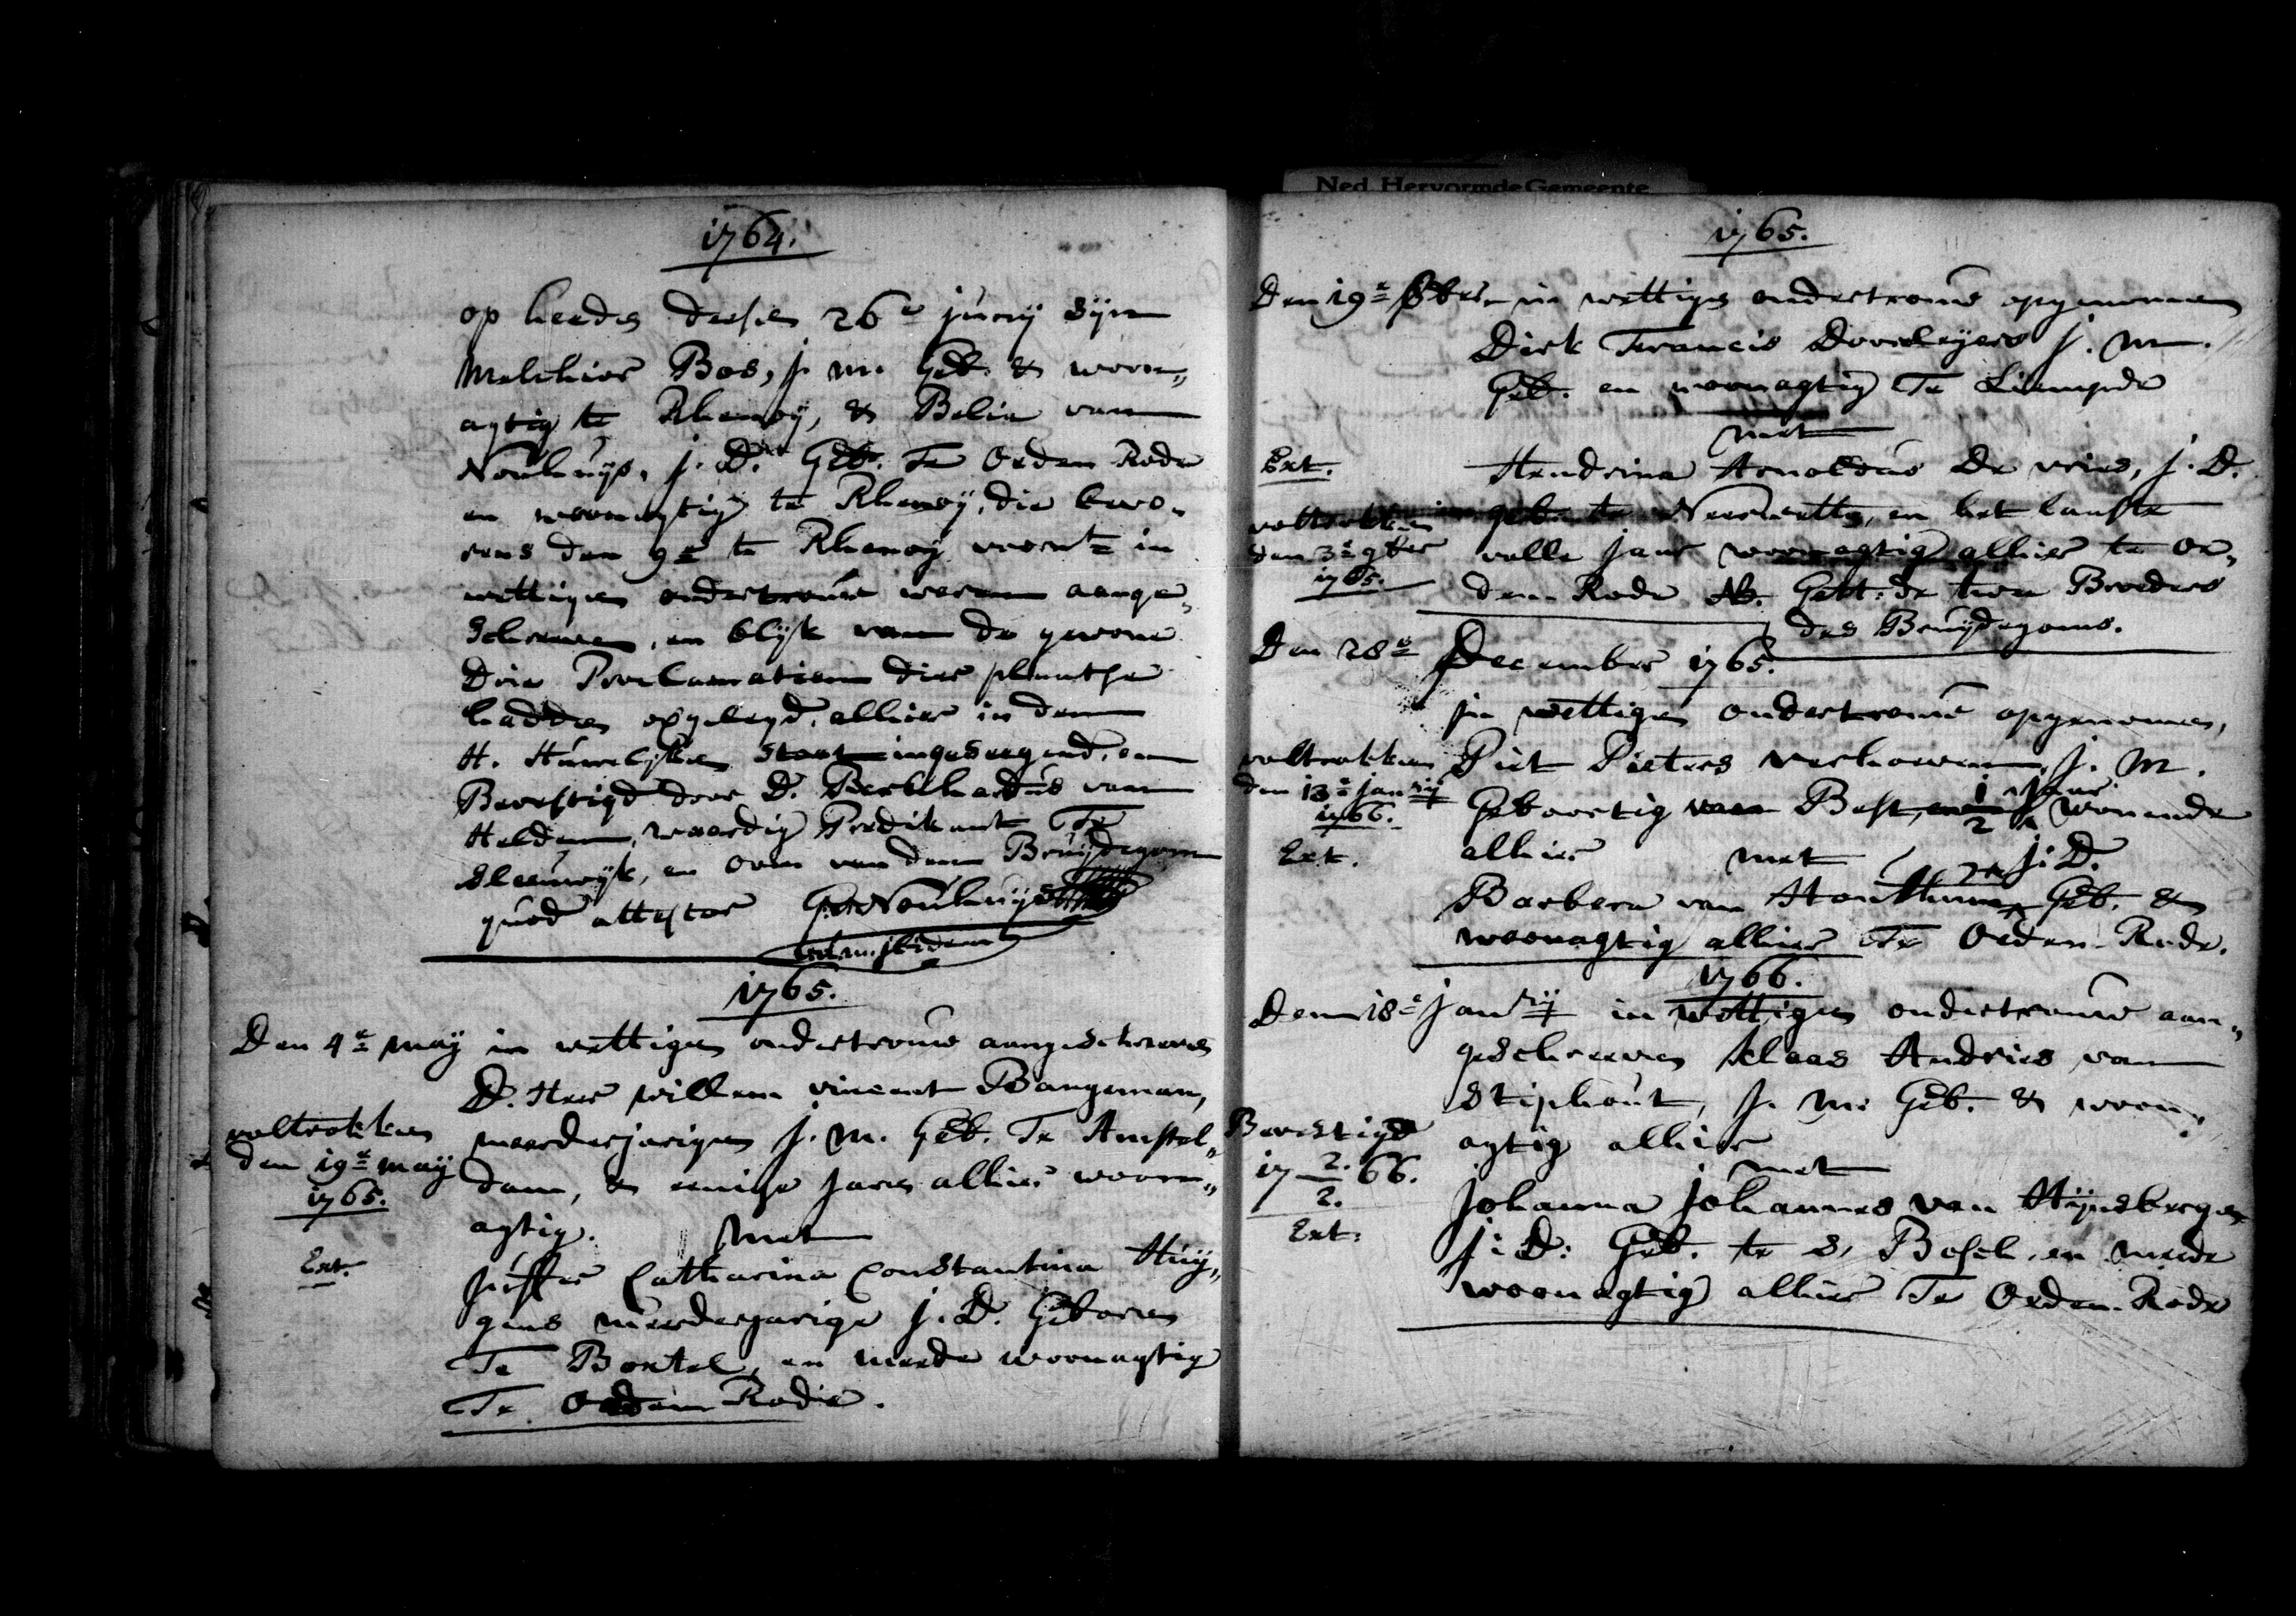 Ned. Hervormde Gemeente
1764.
op heeden deesen 26e junij sijn
Melchior Bos, j. m. Geb. & woon„
agtig te Rhenoij, & Belia van
Nouhuijs, j. D. Geb. Te Oeden Rode
en woonagtig te Rhenoij, die bevo„
rens den 9e te Rhenoij voornt in
wettigen ondertrouw waren aange„
Schreven, en blijk van de gewone
Drie Proclamatien dier plaatse
hadden opgelegd, alhier in den
H. Huwelijken Staat ingeseegend, en
Bevestigd door D. van
Helden, waardig Predikant Te
Sleeuwijk, en Oom van den Bruijdegom
quod attestor G. v. Nouhuijs
1765.
Den 4e maij in wettigen ondertrouw aangeschreven
D. Heer willem vincent Bangeman,
meerderjarigen j. m. Geb. Te Amstel„
voltrokken
den 19e maij
1765.
dam, & eenige Jaren alhier woon„
agtig. met
Ext.
juffer Catharina Constantina Huij„
gens meerderjarige j. D. Geboren
Te Boxtel, en meede woonagtig
Te Oeden Rode.
1765.
Den 19e 8ber in wettigen ondertrouw opgenomen
Dirk Francis Doreleijers j. m.
Geb. en woonagtig Te Liempde
met
Ext.
Hendrina Arnoldus De vries, j. D.
voltrokken
den 3e 9ber
1765.
geb. te Neerwetten, en het laatste
volle jaar woonagtig alhier te Oe„
den Rode Nb. Gett: de twee Broeders
des Bruijdegoms.
Den 28e December 1765.
in wettigen ondertrouw opgenomen,
voltrokken
den 13e janrij
1766.
Ext.
Piet Pieters verhoeven, j. m.
Geboortig van Best, 1/2 jaar wonende
alhier met
j: D.
Barbera van Geb. &
woonagtig alhier Te Oeden-Rode.
1766.
Den 18e janrij in wettigen ondertrouw aan„
geschreeven klaas Andries van
Stiphout, j. m. Geb. & woon„
Bevestigd
17 2./2. 66.
Ext.
agtig alhier
met
johanna johannes van Hijnsbergen
j: D: Geb. te s, Bosch, en meede
woonagtig alhier Te Oeden-Rode